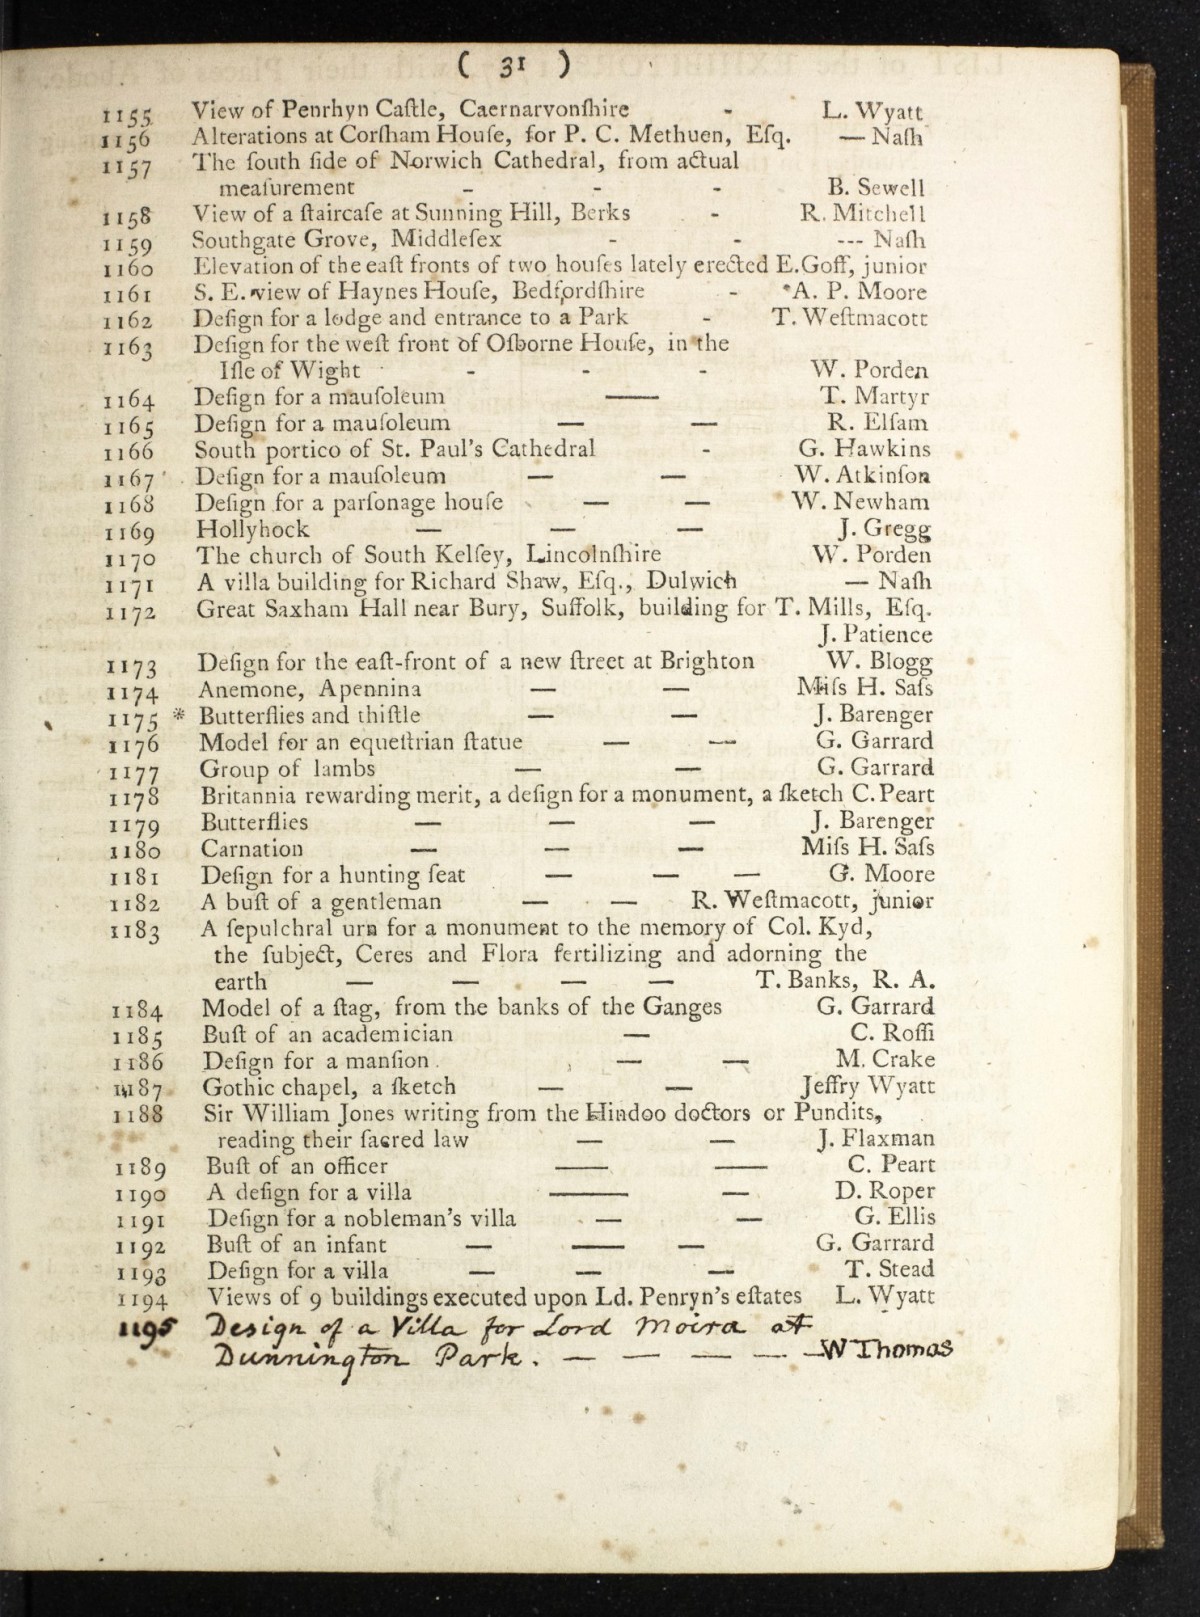 ( 31 )
1155 View of Penrhyn Caſtle, Caernarvonſhire - L. Wyatt
1156 Alterations at Corſham Houſe, for P. C. Methuen, Eſq. — Naſh
1157 The ſouth ſide of Norwich Cathedral, from actual
meaſurement - - - B. Sewell
1158 View of a ſtaircaſe at Sunning Hill, Berks - R. Mitchell
1159 Southgate Grove, Middleſex - - --- Naſh
1160 Elevation of the eaſt fronts of two houſes lately erected E. Goff, junior
1161 S. E. view of Haynes Houſe, Bedfordſhire - A. P. Moore
1162 Deſign for a lodge and entrance to a Park - T. Weſtmacott
1163 Deſign for the weſt front of Oſborne Houſe, in the
Iſle of Wight - - - W. Porden
1164 Deſign for a mauſoleum — T. Martyr
1165 Deſign for a mauſoleum — — R. Elſam
1166 South portico of St. Paul's Cathedral - G. Hawkins
1167 Deſign for a mauſoleum — — W. Atkinſon
1168 Deſign for a parſonage houſe — — W. Newham
1169 Hollyhock — — — J. Gregg
1170 The church of South Kelſey, Lincolnſhire W. Porden
1171 A villa building for Richard Shaw, Eſq., Dulwich — Naſh
1172 Great Saxham Hall near Bury, Suffolk, building for T. Mills, Eſq.
J. Patience
1173 Deſign for the eaſt-front of a new ſtreet at Brighton W. Blogg
1174 Anemone, Apennina — — Miſs H. Saſs
1175 * Butterflies and thiſtle — — J. Barenger
1176 Model for an equeſtrian ſtatue — — G. Garrard
1177 Group of lambs — — G. Garrard
1178 Britannia rewarding merit, a deſign for a monument, a ſketch C. Peart
1179 Butterflies — — — J. Barenger
1180 Carnation — — — Miſs H. Saſs
1181 Deſign for a hunting ſeat — — — G. Moore
1182 A buſt of a gentleman — — R. Weſtmacott, junior
1183 A ſepulchral urn for a monument to the memory of Col. Kyd,
the ſubject, Ceres and Flora fertilizing and adorning the
earth — — — — T. Banks, R. A.
1184 Model of a ſtag, from the banks of the Ganges G. Garrard
1185 Buſt of an academician — C. Roſſi
1186 Deſign for a manſion — — M. Crake
1187 Gothic chapel, a ſketch — — Jeffry Wyatt
1188 Sir William Jones writing from the Hindoo doctors or Pundits,
reading their ſacred law — — J. Flaxman
1189 Buſt of an officer — — C. Peart
1190 A deſign for a villa — — D. Roper
1191 Deſign for a nobleman's villa — — G. Ellis
1192 Buſt of an infant — — — G. Garrard
1193 Deſign for a villa — — — T. Stead
1194 Views of 9 buildings executed upon Ld. Penryn's eſtates L. Wyatt
1195 Design of a Villa for Lord Moira at
Dunnington Park. — — — — — W Thomas